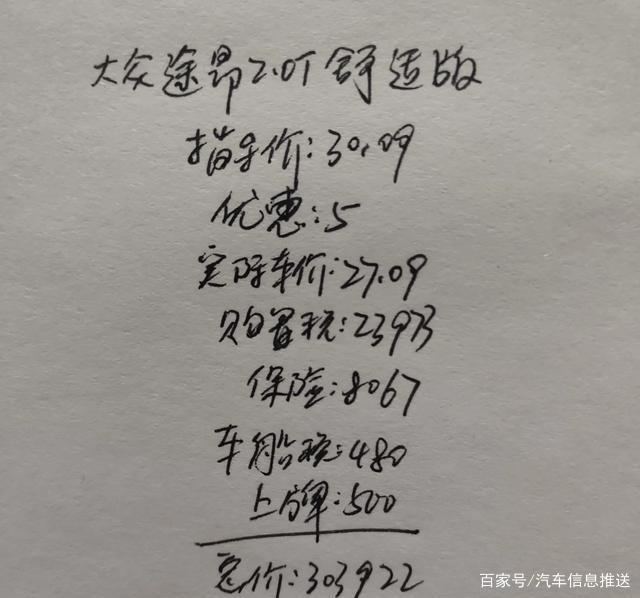 大众途昂2.0T舒适版
指导价:30.09
优惠:5
实际车价:27.09
购置税:23973
保险:8067
车船税:480
上牌:500
总价:303922
百家号/汽车信息推送